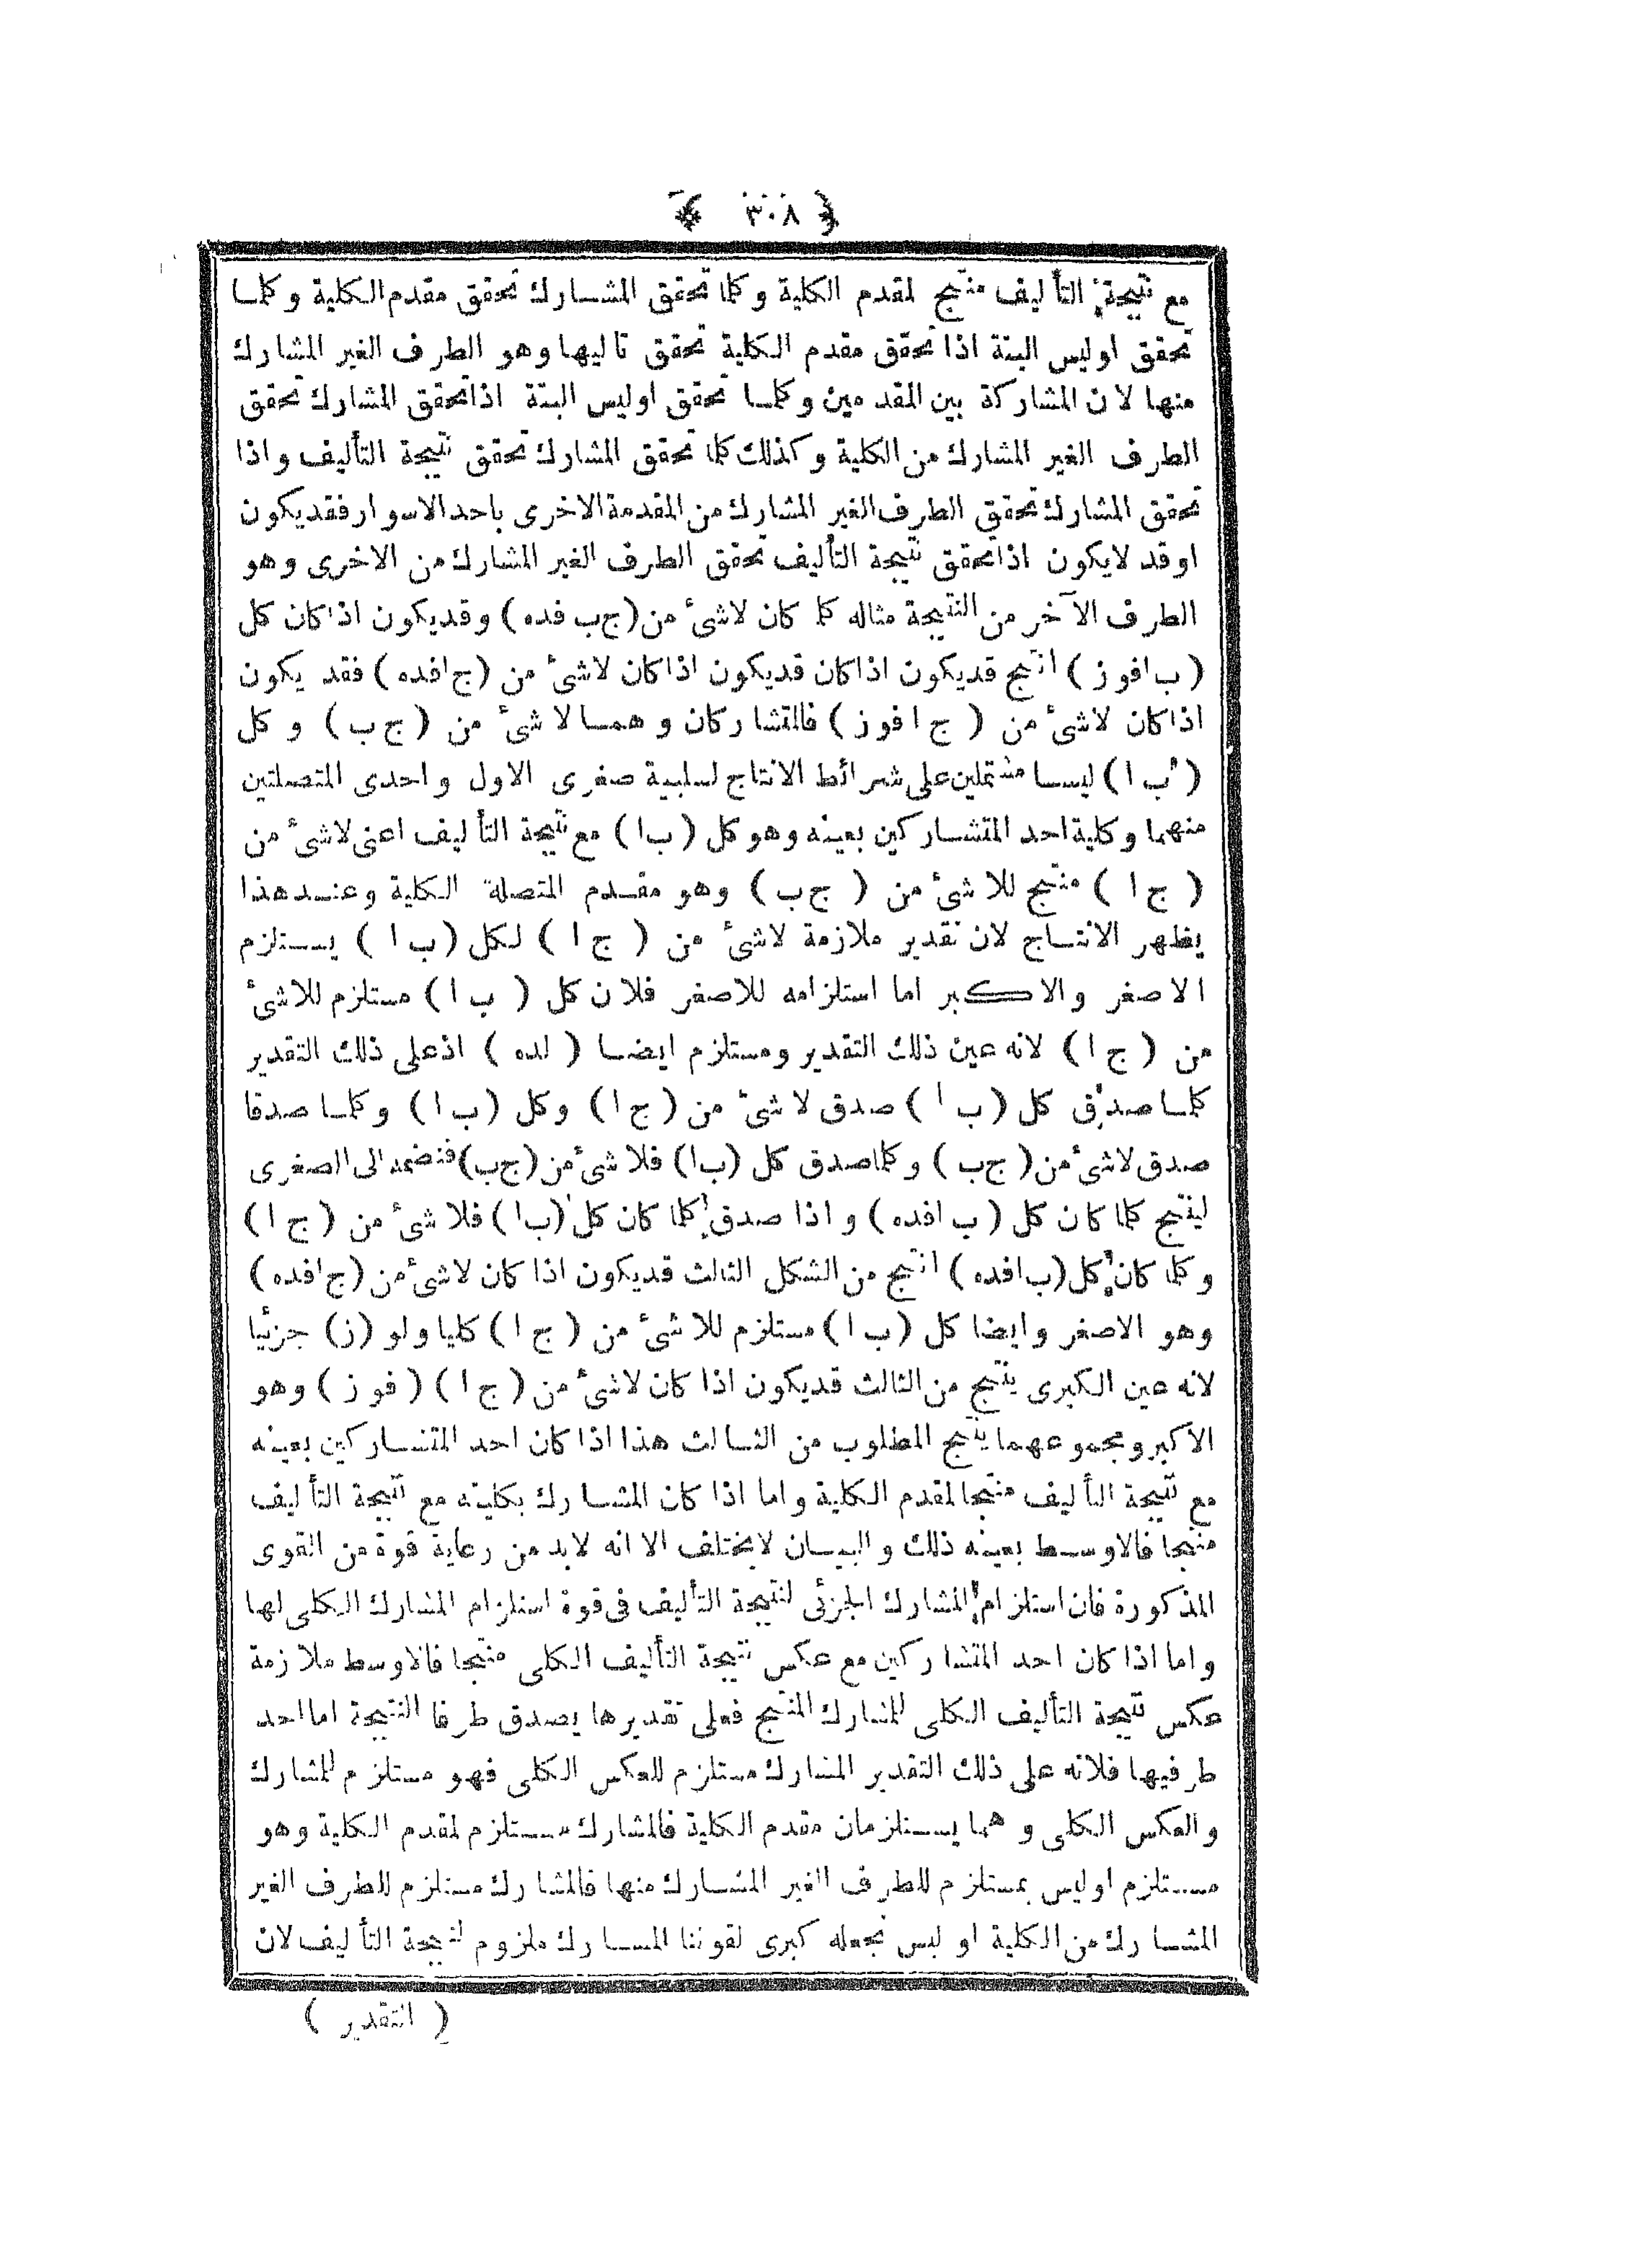 ﴿ ٣٠٨ ﴾
مع نتيجة التأليف منتج لمقدم الكلية وكلما تحقق المشارك تحقق مقدم الكلية وكلما
تحقق اوليس البتة اذا تحقق مقدم الكلية تحقق تاليها وهو الطرف الغير المشارك
منها لان المشاركة بين المقدمين وكلما تحقق اوليس البتة اذا تحقق المشارك تحقق
الطرف الغير المشارك من الكلية وكذلك كلما تحقق المشارك تحقق نتيجة التأليف واذا
تحقق المشارك تحقق الطرف الغير المشارك من المقدمة الاخرى باحد الاسوار فقد يكون
اوقد لايكون اذا تحقق نتيجة التأليف تحقق الطرف الغير المشارك من الاخرى وهو
الطرف الآخر من النتيجة مثاله كلما كان لاشئ من (ج ب فده) وقديكون اذا كان كل
(ب ا فوز) انتج قديكون اذا كان قديكون اذا كان لاشئ من (ج ا فده) فقد يكون
اذا كان لاشئ من (ج ا فوز) فالمتشاركان وهما لاشئ من (ج ب) وكل
(ب ا) ليسا مشتملين على شرائط الانتاج لسلبية صغرى الاول واحدى المتصلتين
منهما وكلية احد المتشاركين بعينه وهو كل (ب ا) مع نتيجة التأليف اعنى لاشئ من
(ج ا) منتج للاشئ من (ج ب) وهو مقدم المتصلة الكلية وعند هذا
يظهر الانتاج لان تقدير ملازمة لاشئ من (ج ا) لكل (ب ا) يستلزم
الاصغر والاكبر اما استلزامه للاصغر فلان كل (ب ا) مستلزم للاشئ
من (ج ا) لانه عين ذلك التقدير ومستلزم ايضا (لده) اذعلى ذلك التقدير
كلما صدق كل (ب ا) صدق لاشئ من (ج ا) وكل (ب ا) وكلما صدقا
صدق لاشئ من (ج ب) وكلما صدق كل (ب ا) فلاشئ من (ج ب) فنضمه الى الصغرى
لينتج كلما كان كل (ب ا فده) واذا صدق كلما كان كل (ب ا) فلاشئ من (ج ا)
وكلما كان كل (ب ا فده) انتج من الشكل الثالث قديكون اذا كان لاشئ من (ج ا فده)
وهو الاصغر وايضا كل (ب ا) مستلزم للاشئ من (ج ا) كليا ولو (ز) جزئيا
لانه عين الكبرى ينتج من الثالث قديكون اذا كان لاشئ من (ج ا) (فوز) وهو
الاكبر ومجموعهما ينتج المطلوب من الثالث هذا اذا كان احد المتشاركين بعينه
مع نتيجة التأليف منتجا لمقدم الكلية واما اذا كان المشارك بكليته مع نتيجة التأليف
منتجا فالاوسط بعينه ذلك والبيان لايختلف الا انه لابد من رعاية قوة من القوى
المذكورة فان استلزام المشارك الجزئى لنتيجة التأليف فى قوة استلزام المشارك الكلى لها
واما اذا كان احد المتشاركين مع عكس نتيجة التأليف الكلى منتجا فالاوسط ملازمة
عكس نتيجة التأليف الكلى للمشارك المنتج فعلى تقديرها يصدق طرفا النتيجة اما احد
طرفيها فلانه على ذلك التقدير المشارك مستلزم للعكس الكلى فهو مستلزم للمشارك
والعكس الكلى وهما يستلزمان مقدم الكلية فالمشارك مستلزم لمقدم الكلية وهو
مستلزم اوليس بمستلزم للطرف الغير المشارك منها فالمشارك مستلزم للطرف الغير
المشارك من الكلية او ليس نجعله كبرى لقولنا المشارك ملزوم لنتيجة التأليف لان
( التقدير )